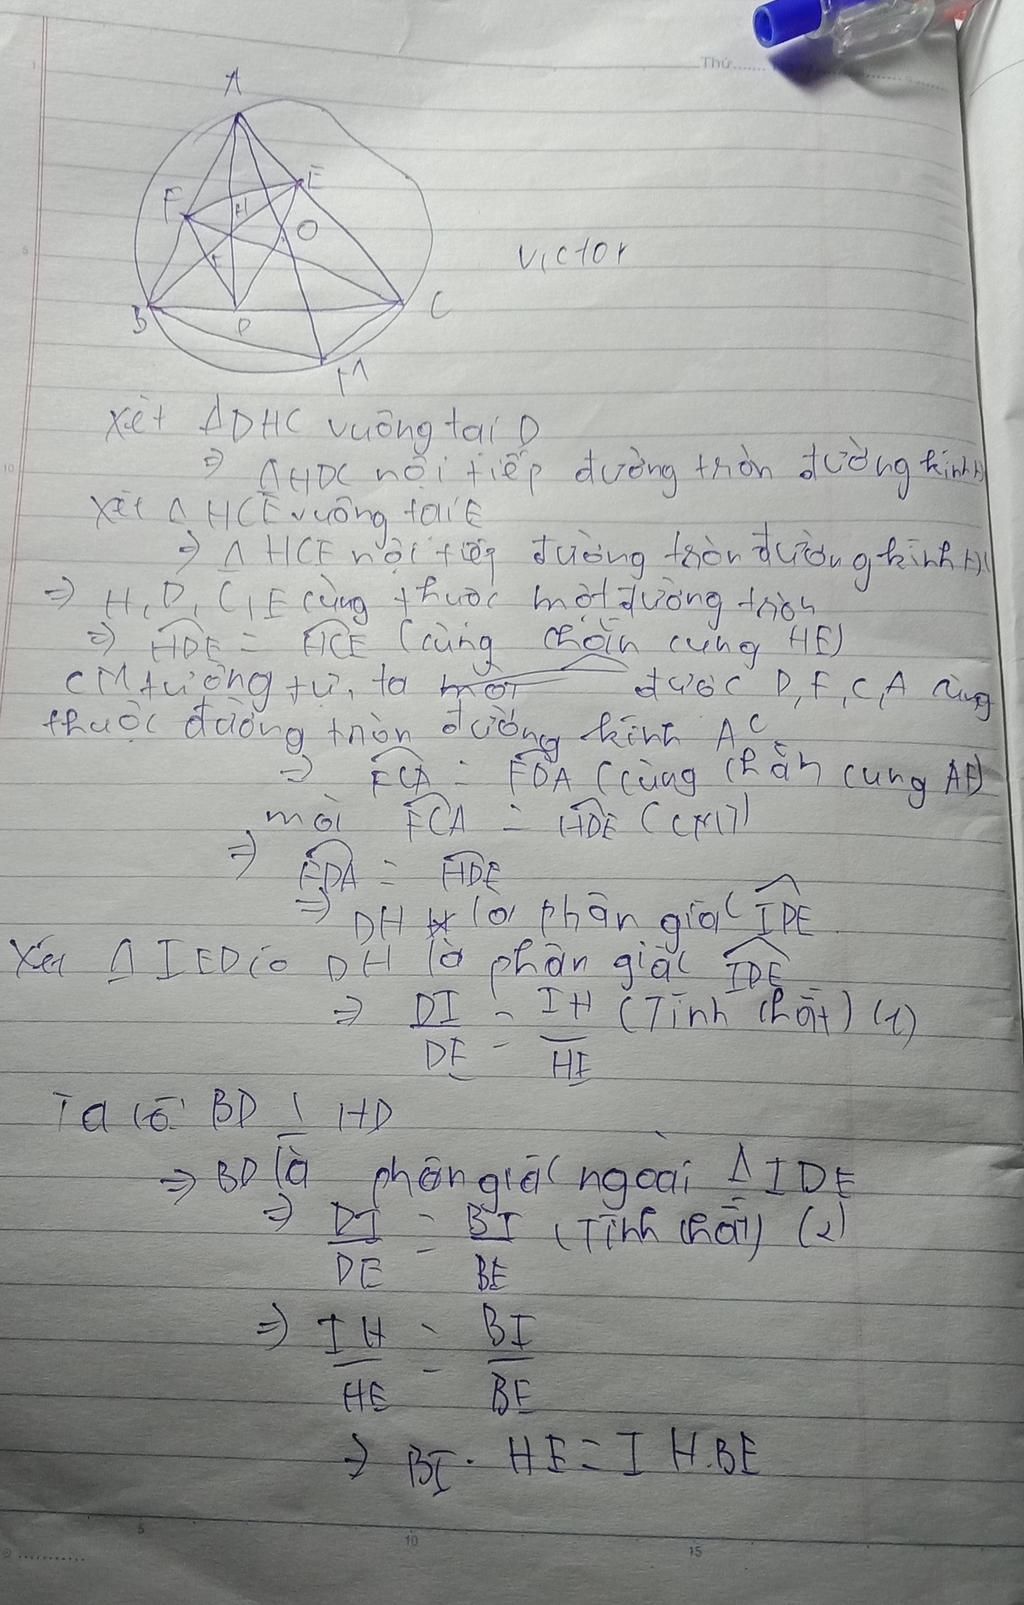 Thứ
A
F
E
H
O
I
B
D
C
M
Victor
Xét ΔDHC vuông tại D
⇒ ΔHDC nội tiếp đường tròn đường kính H
Xét ΔHCE vuông tại E
⇒ ΔHCE nội tiếp đường tròn đường kính H
⇒ H, D, C, E cùng thuộc một đường tròn
⇒ HDE = HCE (cùng chắn cung HE)
CM tương tự, ta được D, F, C, A cùng
thuộc đường tròn đường kính AC
⇒ FCA = FDA (cùng chắn cung AF)
mà FCA = HDE (CMT)
⇒ FDA = HDE
⇒ DH là phân giác IDE
Xét ΔIED có DH là phân giác IDE
⇒ DI/DE = IH/HE (Tính chất) (1)
Ta có: BD ⊥ HD
⇒ BD là phân giác ngoài ΔIDE
⇒ DI/DE = BI/BE (Tính chất) (2)
⇒ IH/HE = BI/BE
⇒ BI. HE = IH.BE
5 10 15